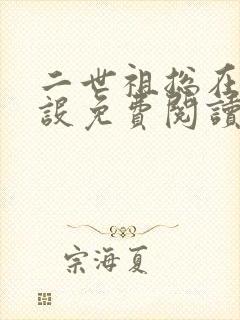 二世祖总在
設免費閱讀
宗海夏